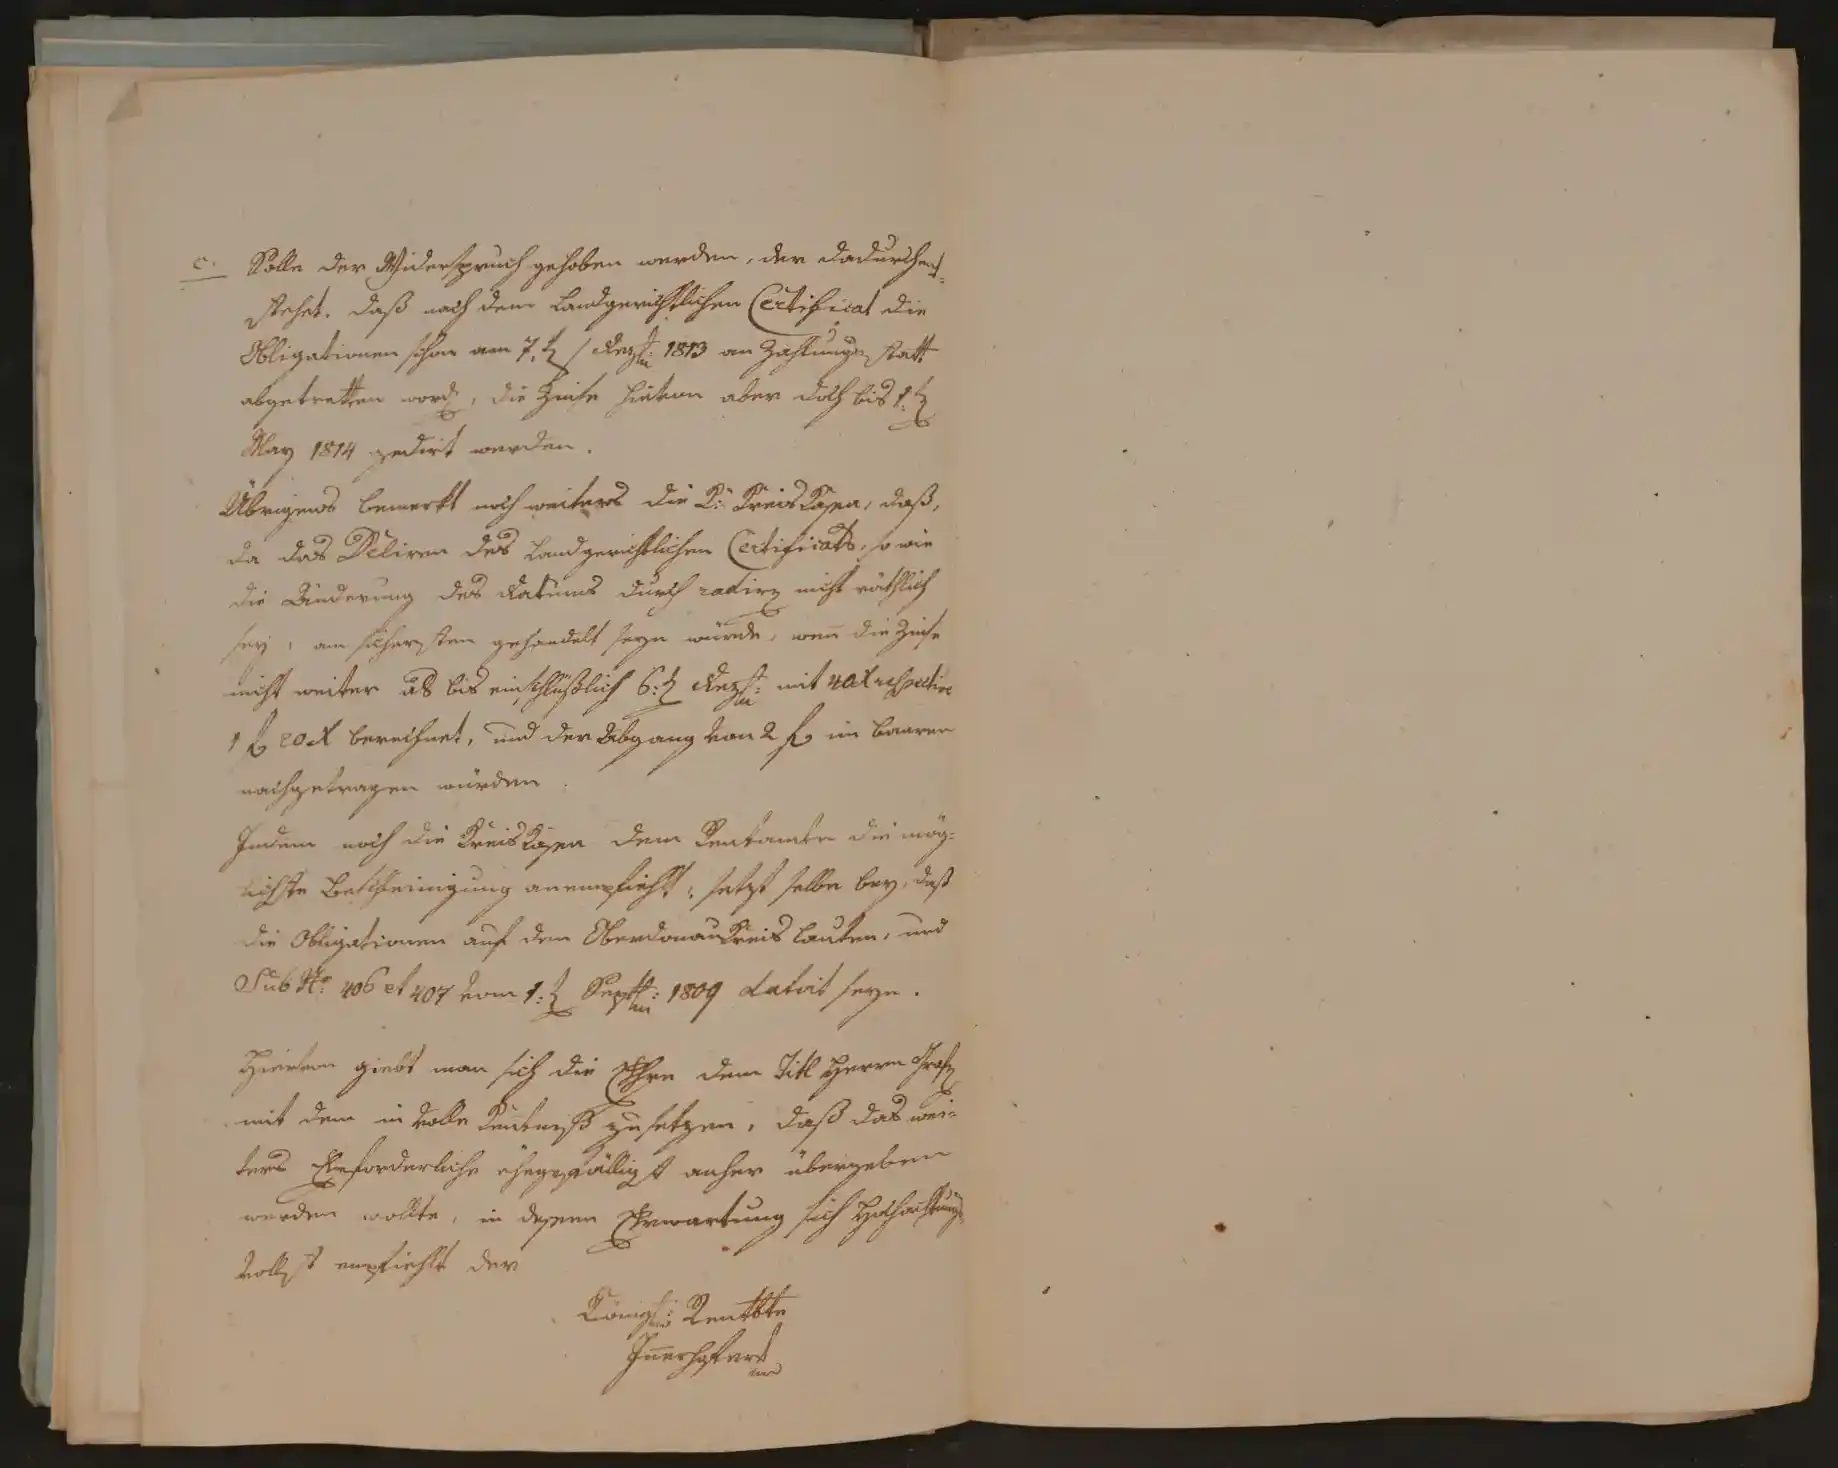 c. Solle der Widerspruch gehoben werden, der dadurch ent-
stehet, daß nach dem Landgerichtlichen Certificat die
Obligationen schon am 7. 1813 an Zahlungs statt
abgetretten word, die Zinse hievon aber doch bis 1.
May 1814 zedirt werden.
Übrigens bemerkt noch weiters die K: Kreis Kassa, daß,
da das Deliren des Landgerichtlichen Certificats, so wie
die Änderung des Datums durch radirn nicht räthlich
sey, am sichersten gehandelt seyn würde, wenn die Zinse
nicht weiter als bis einschlüßlich 6. mit 40 x respective
1 f 20 x berechnet, und der Abgang von 2 f im baaren
nachgetragen würden.
Indem noch die Kreis Kassa dem Rentamte die mög-
lichste Beschleinigung anempfiehlt, setzt selbe bey, daß
die Obligationen auf den Oberdonau Kreis lauten, und
Sub No: 406 et 407 vom 1. Sept: 1809 datirt seyn.
Hievon giebt man sich die Ehre dem Titl Herrn Grafn
mit dem in volle Kentniß zu setzen, daß das wei-
ters Erforderliche ehegefälligst anher übergeben
werden wollte, in dessen Erwartung sich Hochachtungs-
vollst empfiehlt der
Königl: Rentbte